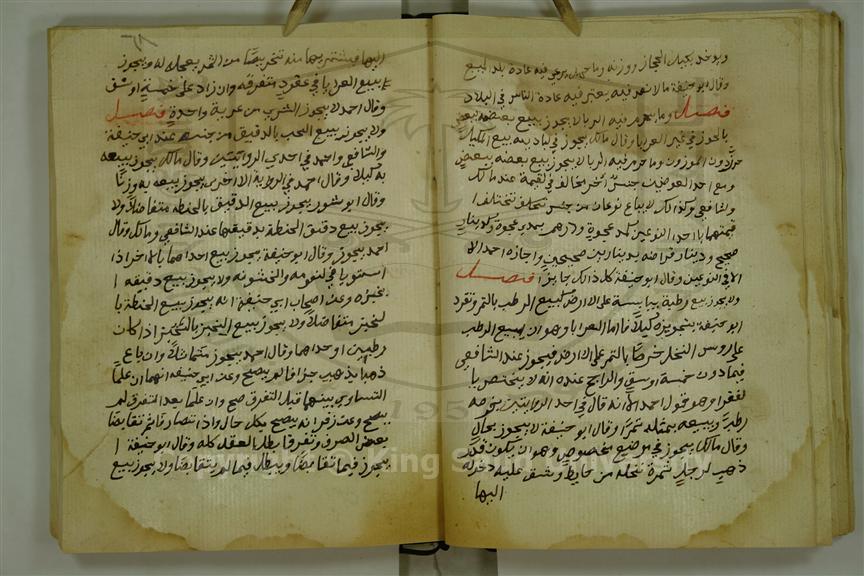 ويوخذ بكيل الحجاز ووزنه وما جهل يرعي فيه عادة بلد البيع
وقال ابو حنيفة ما لا نص فيه يعتبر فيه عادة الناس في البلاد
فصل وما يحرم فيه الربا لا يجوز بيع بعضه ببعض
بالحرز في غير العرايا وقال مالك يجوز في البادية بيع المكيل
حرزا دون الموزون وما حرم فيه الربا لا يجوز بيع بعضه ببعض
ومع احد العوضين جنس آخر يخالف في القيمة عند مالك
والشافعي وكذا لك لا يباع نوعان من جنس تختلف
قيمتهما باحد النوعين كمد عجوة ودرهم بمدي عجوة وكدينار
صحيح ودينار قراضه بدينارين صحيحين واجازه احمد الا
الا في النوعين وقال ابو حنيفة كل ذالك جايز فصل
ولا يجوز بيع رطبة بيابسة على الارض كبيع الرطب بالتمر وتفرد
ابو حنيفة بتجويزه كيلا فاما العرايا وهو ان يبيع الرطب
على روس النخل خرصا بالتمر على الارض فيجوز عند الشافعي
فيما دون خمسة اوسق والراجح عنده انه لا يختص بالفقرا
وهو قول احمد الا انه قال في احد الروايتين يخرصه
رطبا ويبيعه بمثله تمرا وقال ابو حنيفة لا يجوز بحال
وقال مالك يجوز في موضع مخصوص وهو ان يكون قد
وهب لرجل ثمرة نخله من حايط ويشق عليه دخوله
اليها
اليها فيشتريها منه تخريصا من التمر يعجله له ويجوز
بيع العرايا في عقود متفرقه وان زاد على خمسة اوسق
وقال احمد لا يجوز اكثر من عرية واحدة فصل
ولا يجوز بيع الحب بالدقيق من جنسه عند ابي حنيفة
والشافعي واحمد في احدي الروايتين وقال مالك يجوز بيعه
به كيلا وقال احمد في الرواية الاخرى يجوز بيعه به وزنا
وقال ابو ثور يجوز بيع الدقيق بالحنطه متفاضلا ولا
يجوز بيع دقيق الحنطة بدقيقها عند الشافعي ومالك وقال
احمد يجوز وقال ابو حنيفة يجوز بيع احدهما بالاخر اذا
استويا في النعومه والخشونه ولا يجوز بيع دقيقه
بخبزه وعن اصحاب ابي حنيفة انه يجوز بيع الحنطة با
لخبز متفاضلا ولا يجوز بيع الخبز بالخبز اذا كان
رطبين او احدهما وقال احمد يجوز متماثلا وان باع
ذهبا بذهب جزافا لم يصح وعن ابي حنيفة انهما ان علما
التساوي بينهما قبل التفرق صح وان علما بعد التفرق لم
يصح وعن زفر انه يصح بكل حال واذا تصارفا ثم تقابضا
بعض الصرف وتفرقا بطل العقد كله وقال ابو حنيفة
يجوز فيما تقابضا ويبطل فيما لم يتقابضا ولا يجوز بيع